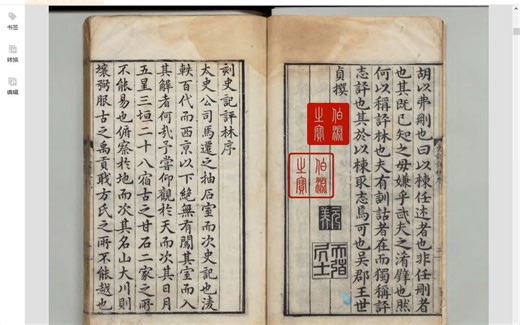 书签
转换
编辑
胡以弗剛也曰以棟任述者也非任剛者
也其既已知之毋嫌乎哉夫之淆譬也然
何以稱評林也夫有訓詁者在而獨稱評
志評也其於以棟取志焉可也吳郡王世
貞撰
伯淵之寶
伯淵之寶
刻史記評林序
太史公司馬遷之抽石室而次史記也淩
軼百代而西京以下絕無有闖其室而入
其解者何哉子嘗仰觀於天而次其日月
五星三垣二十八宿古之甘石二家之所
不能易也俯察於地而次其名山大川則
壤弼服古之禹貢職方氏之所不能越也